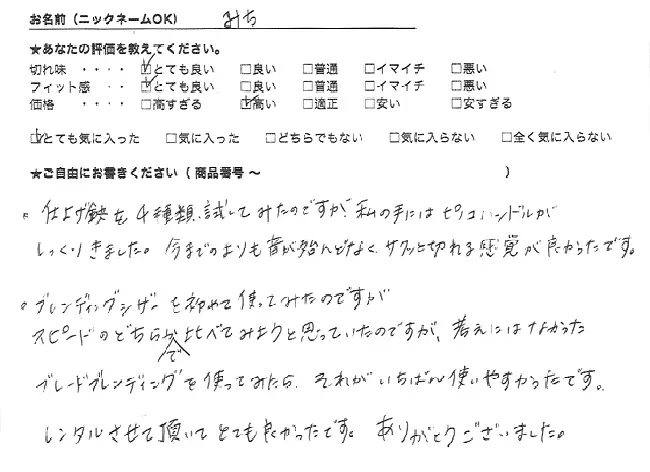 お名前（ニックネームOK） みち
★あなたの評価を教えてください。
切れ味 ・・・・ ☑とても良い □良い □普通 □イマイチ □悪い
フィット感 ・・・・ ☑とても良い □良い □普通 □イマイチ □悪い
価格 ・・・・ □高すぎる ☑高い □適正 □安い □安すぎる
☑とても気に入った □気に入った □どちらでもない □気に入らない □全く気に入らない
★ご自由にお書きください（商品番号〜 ）
仕上げ鋏を4種類、試してみたのですが、私の手にはピッコハンドルが
しっくりきました。今までのよりも音が殆んどなく、サクッと切れる感覚が良かったです。
ブレンディングシザーを初めて使ってみたのですが
スピードのどちらかで比べてみようと思っていたのですが、考えにはなかった
ブレードブレンディングを使ってみたら、それがいちばん使いやすかったです。
レンタルさせて頂いてとても良かったです。ありがとうございました。